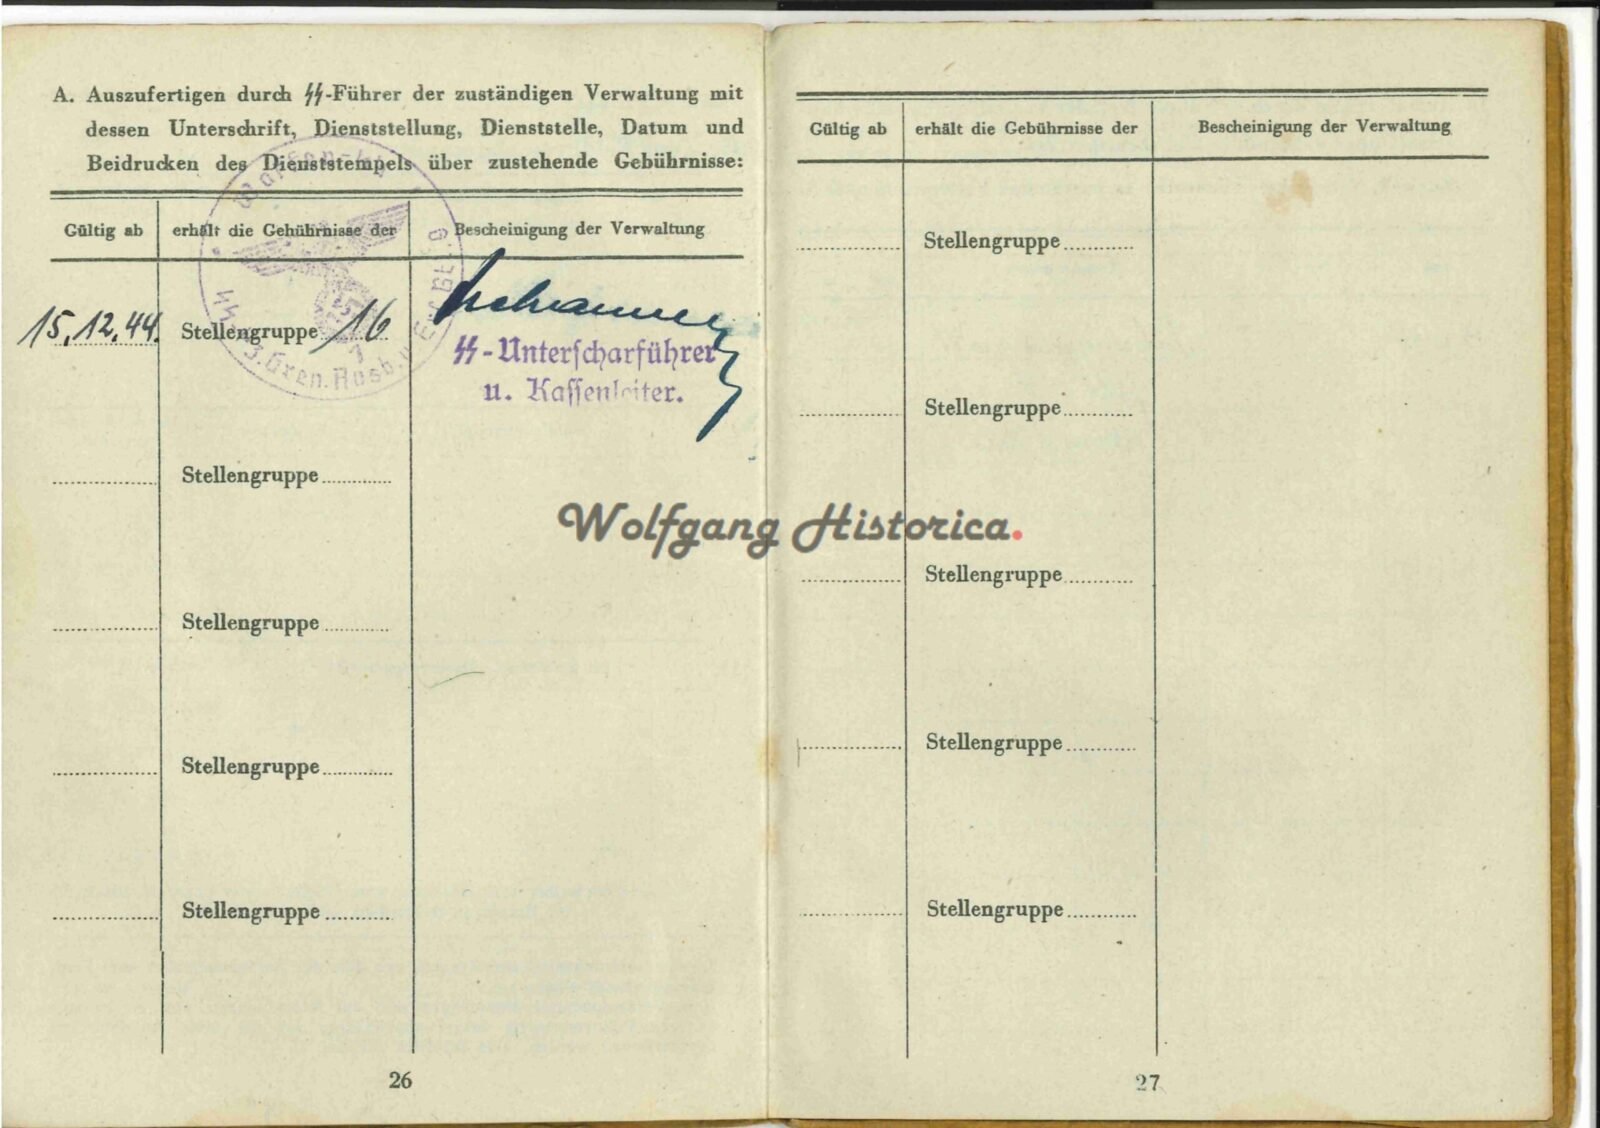 A. Auszufertigen durch ᛋᛋ-Führer der zuständigen Verwaltung mit
dessen Unterschrift, Dienststellung, Dienststelle, Datum und
Beidrucken des Dienststempels über zustehende Gebührnisse:
Gültig ab erhält die Gebührnisse der Bescheinigung der Verwaltung
15.12.44. Stellengruppe 16
ᛋᛋ-Unterscharführer
u. Kassenleiter.
Waffen-ᛋᛋ
Gren. Ausb. u.
Stellengruppe
Stellengruppe
Stellengruppe
Stellengruppe
26
Gültig ab erhält die Gebührnisse der Bescheinigung der Verwaltung
Stellengruppe
Stellengruppe
Stellengruppe
Stellengruppe
Stellengruppe
27
Wolfgang Historica.